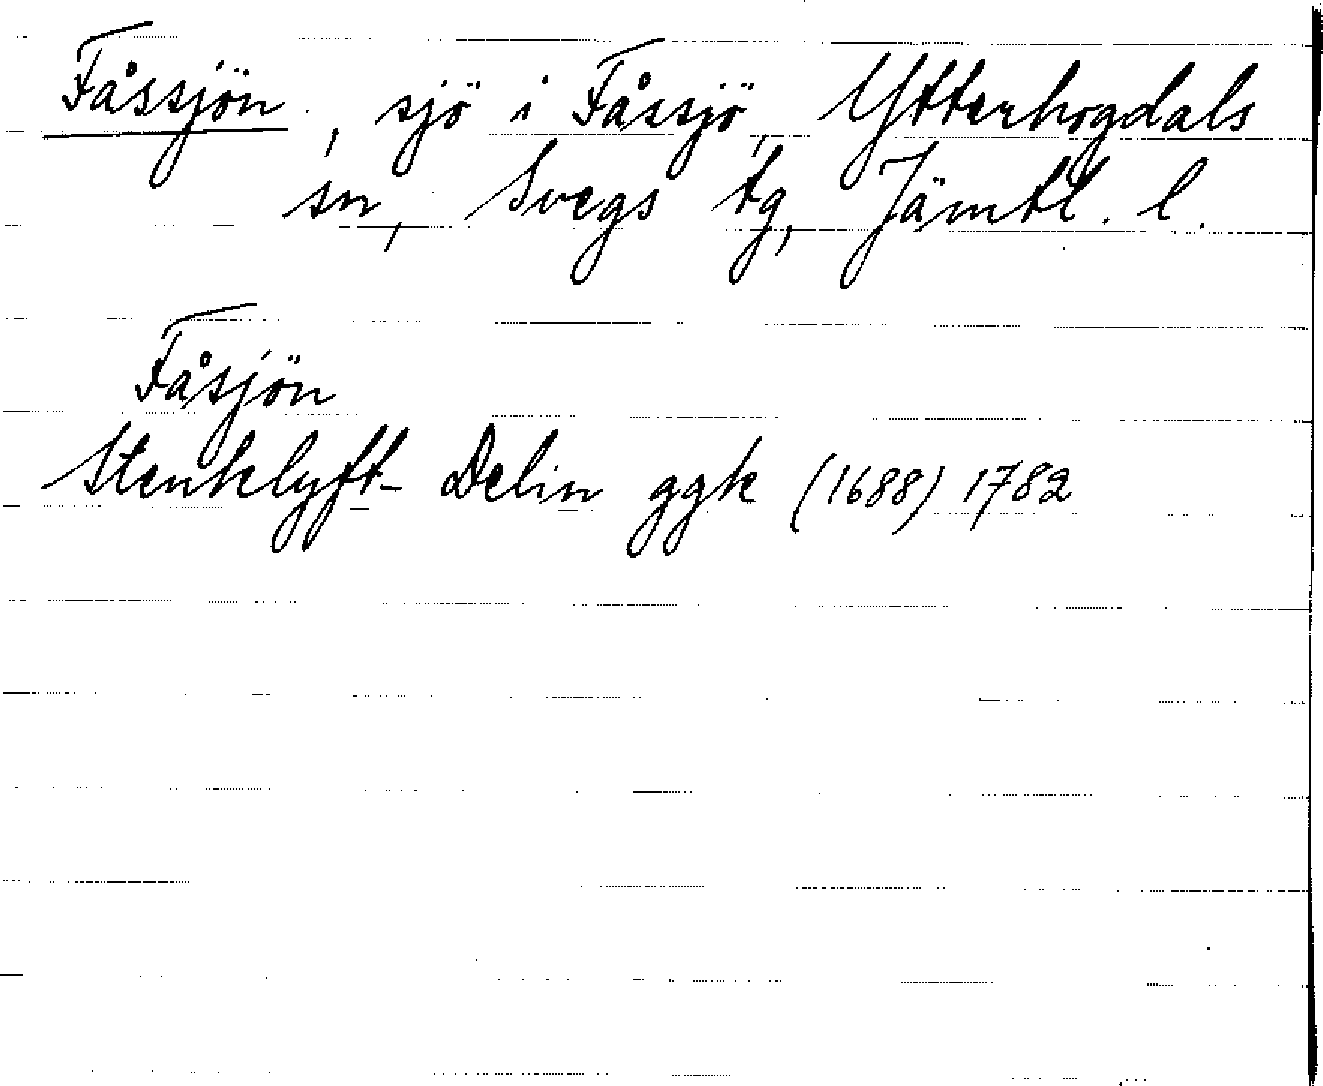 Fåssjön, sjö i Fåssjö, Ytterhogdals
sn, Svegs tg, Jämtl. l.
Fåsjön
Stenklyft- Delin ggk (1688) 1782